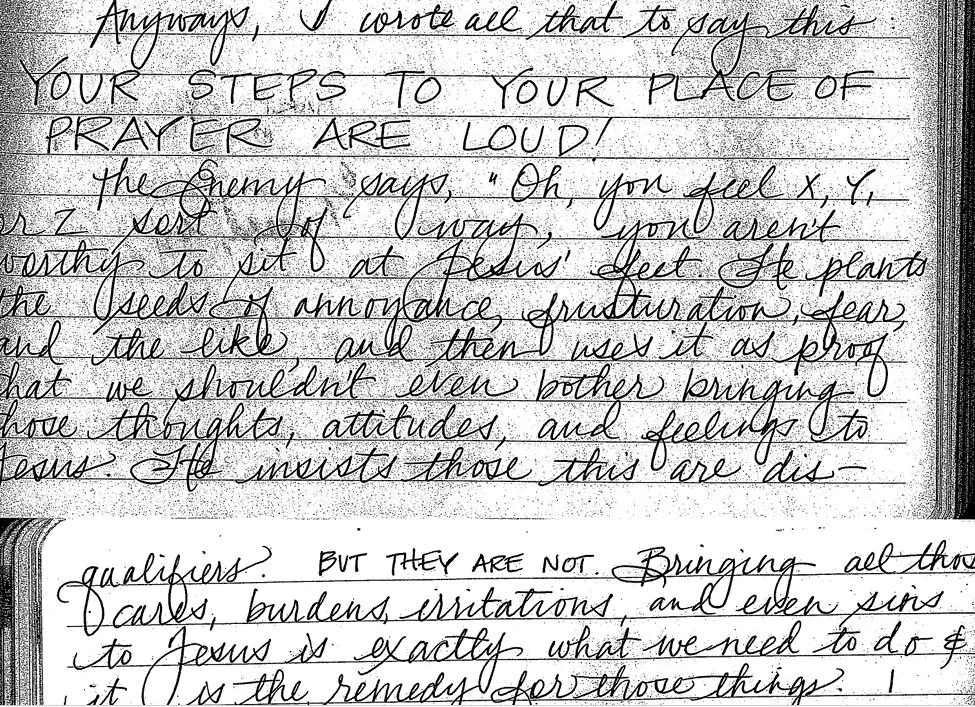 Anyways, I wrote all that to say this
YOUR STEPS TO YOUR PLACE OF
PRAYER ARE LOUD!
The Enemy says, "Oh, you feel X, Y,
or Z sort of way, you aren't
worthy to sit at Jesus' feet. He plants
the seeds of annoyance, frusturation, fear,
and the like, and then uses it as proof
that we shouldn't even bother bringing
those thoughts, attitudes, and feelings to
Jesus. He insists those this are dis-
qualifiers. BUT THEY ARE NOT. Bringing all thos
cares, burdens, irritations, and even sins
to Jesus is exactly what we need to do &
it is the remedy for those things.